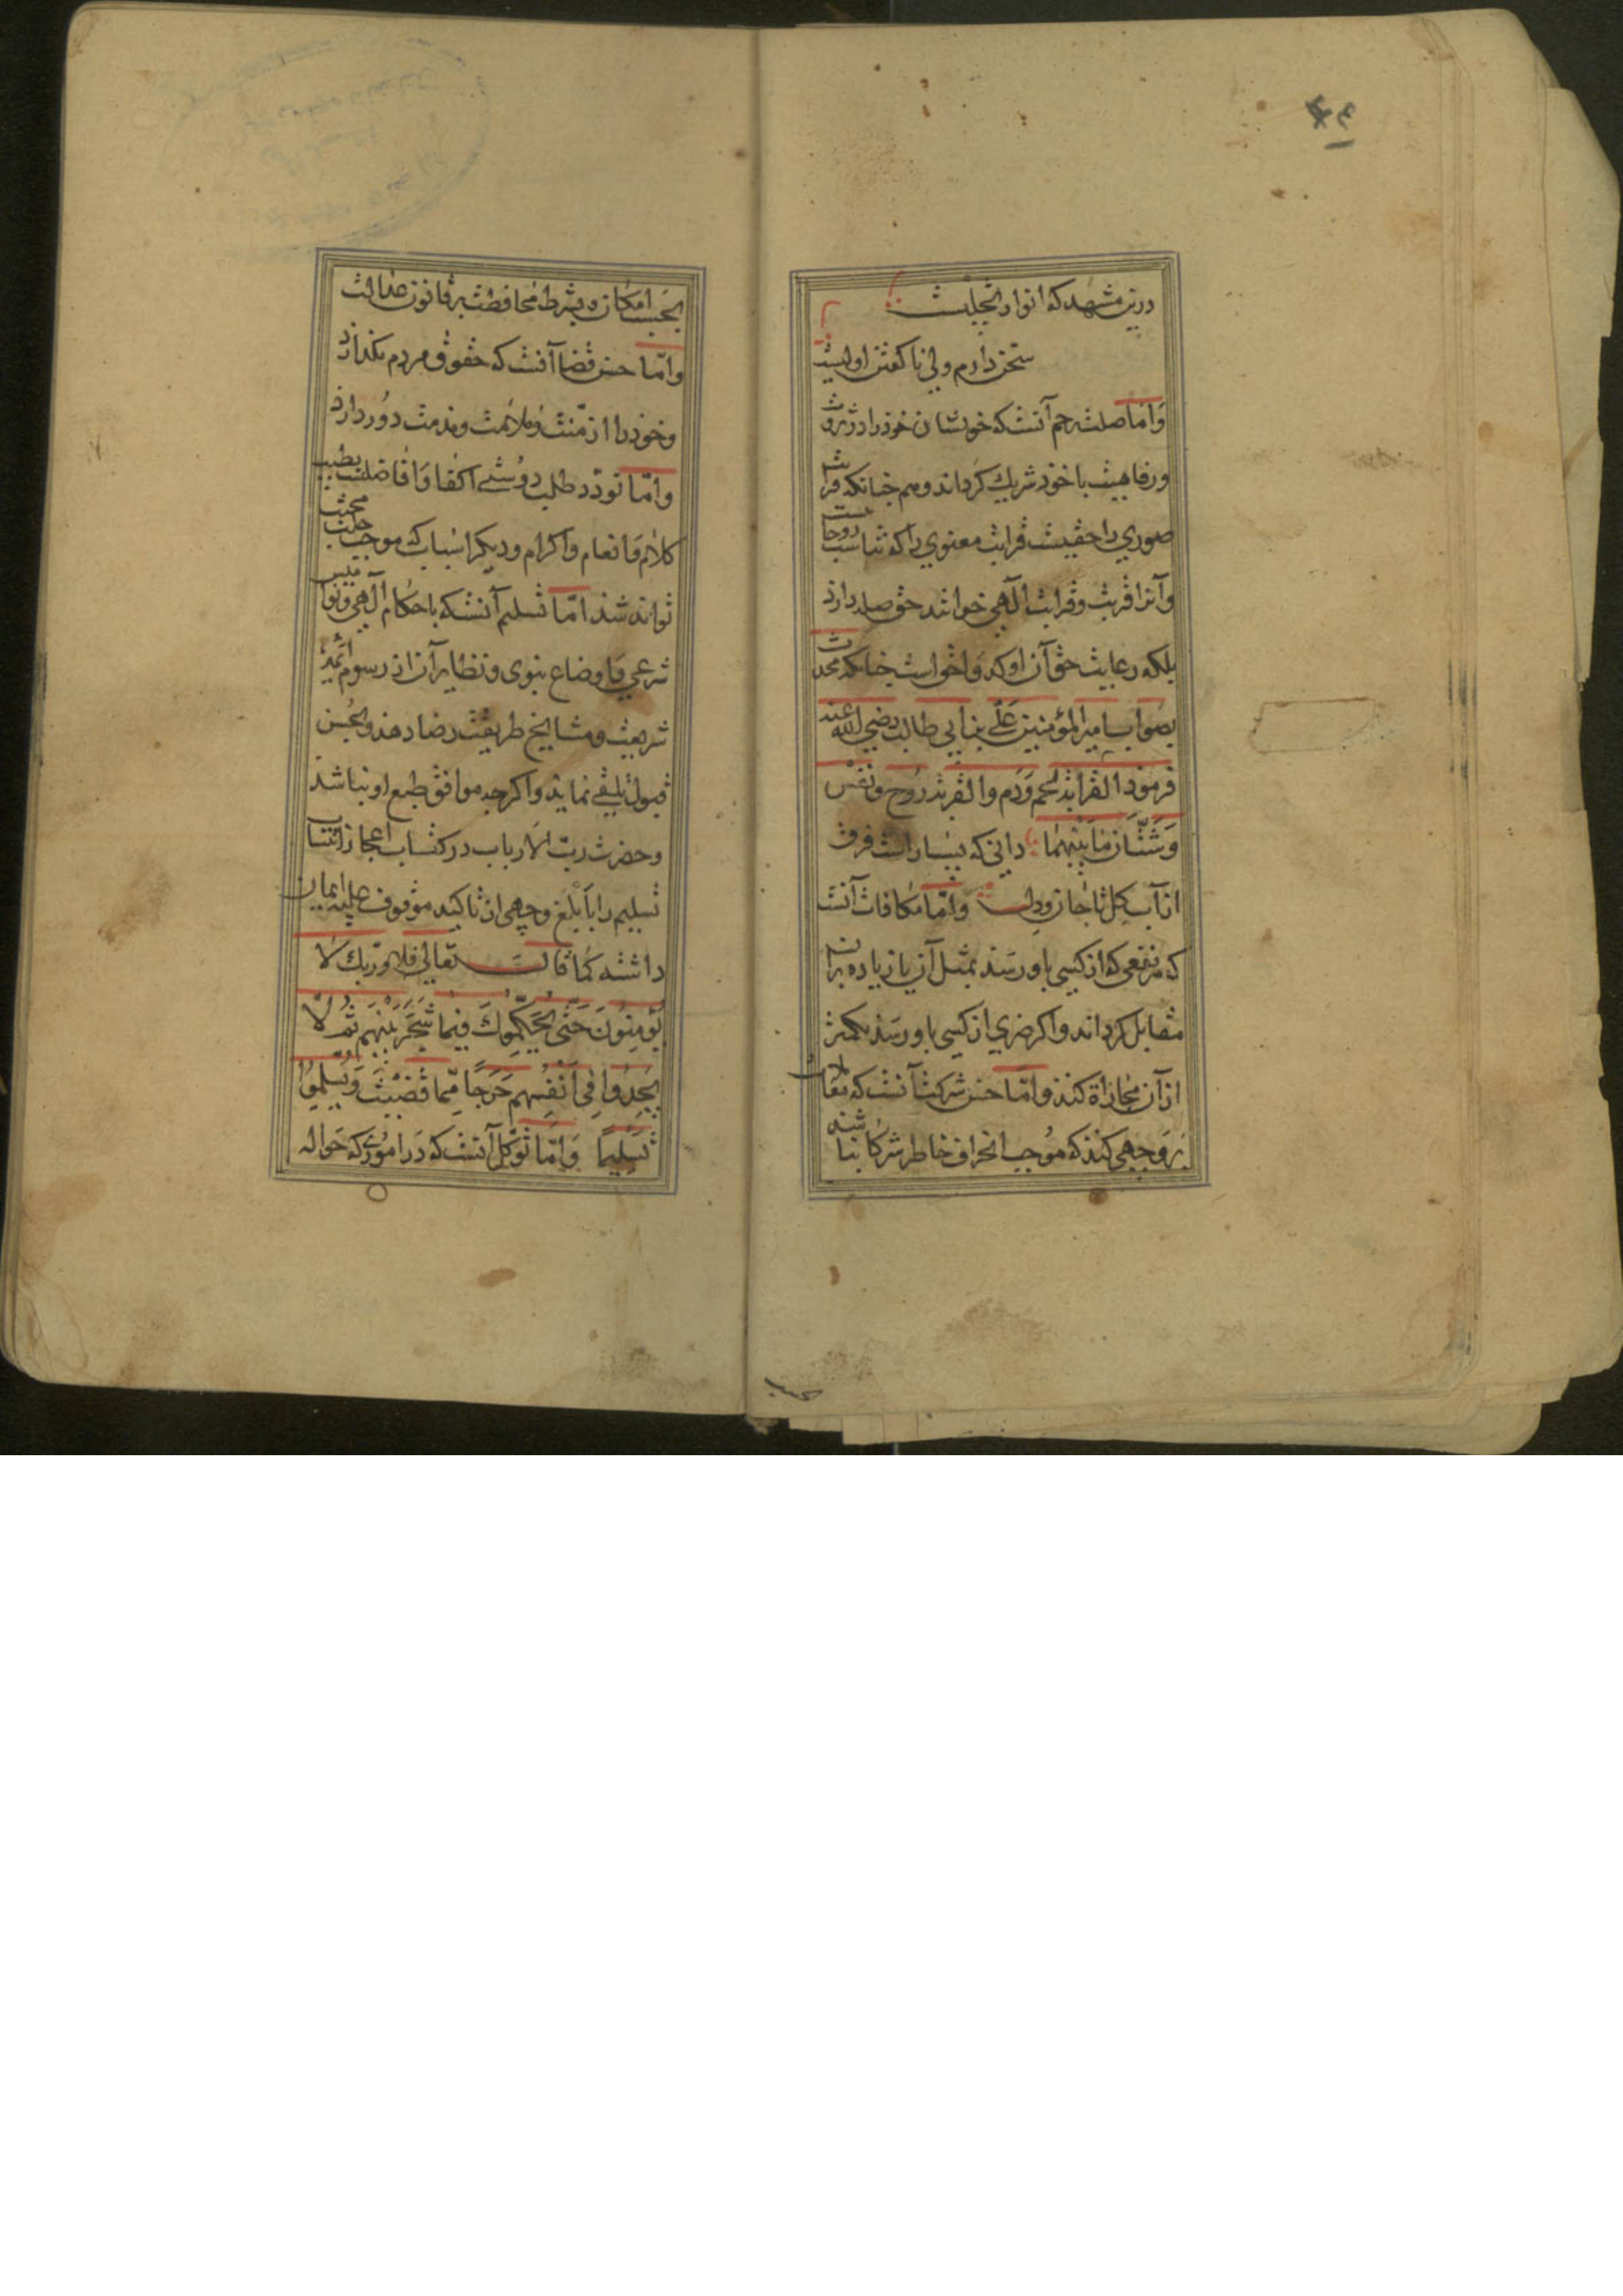 درین مشهد که انوار تجلیست
سخن دارم ولی ناگفتن اولیست
وَامّا صلت رحم آنست که خویشان خوذ را در ثروت
ورفاهیت با خوذ شریك كرداند وهم چنانکه قرابت
صوری را حقیست قرابت معنوی را که تناسب روحانیست
وآنرا قربت وقرابت آلهی خوانند حق صله دارذ
بلکه رعایت حق آن اوکد وَاحق است چنانکه محدث
بصواب امیر المؤمنین عَلی بن ابی طالب رضی الله عنه
فرموذ القرابة لحم وَدَم والقربة رُوح ونفس
وَشَتَّان مَا بَیْنَهُمَا دانی که بسیارست فرق
از آب گل تا جان ودل وَامّا مکافات آنست
که هر نفعی که از کسی باو رسَذ بمثل آن یا زیاده بران
مقابل کرداند واکر ضرری از کسی باو رسَذ بکمتر
از آن مُجازاة کنذ وامّا حسن شرکت آنست که معاملات
بَروَجهی کنذ که مُوجب انحراف خاطر شرکا نباشد
بحَسب امکان وبشرط محافظت بر قانون عدالت
وامّا حسن قضا آنست که حقوق مردم بگذارد
وخوذ را از منّت وملامت ومذمت دوُر دارذ
وامّا تودّد طلب دوُستی اکفا وَافاضلست بطیب
کلام وَانعام واکرام ودیکر اسباب که موجب جلب محبت
تواند شذ امّا تسلیم آنست که باحکام آلهی ونوامیس
شرعی وَاوضاع نبوی ونظایر آن از رسوم ائمه
شریعت ومشایخ طریقت رضا دهذ وبحُسن
قبول تلقی نمایذ واکرچه موافق طبع او نباشذ
وحضرت ربّ الارباب در کتاب اعجاز انتساب
تسلیم را بابلغ وجهی از تاکید موقوف علیه ایمان
داشته کما قال تعالی فلا وَرَبِّك لا
یُؤمِنُونَ حَتّی یُحَکِّمُوكَ فیمَا شَجَرَ بَیْنَهُم ثُمَّ لا
یَجِدُوا فی اَنْفُسِهِم حَرَجًا مِمّا قَضَیْتَ وَیُسَلِّمُوا
تَسْلِیمًا وَامّا تَوکّل آنست که دَر اموُری که حَواله